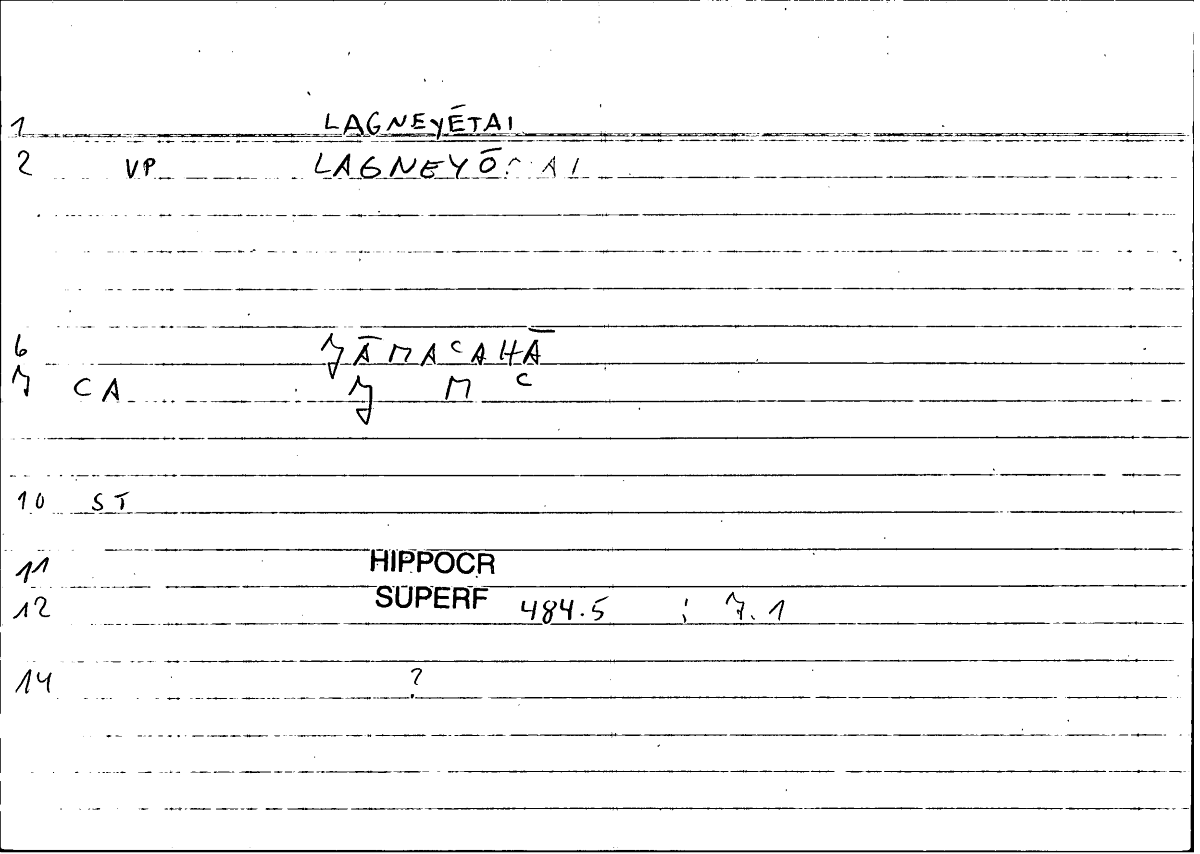 1 LAGNEYĒTAI
2 VP LAGNEYŌ AI
6
7 CA
10 ST
11 HIPPOCR
12 SUPERF 484.5 ; 7.1
14 ?